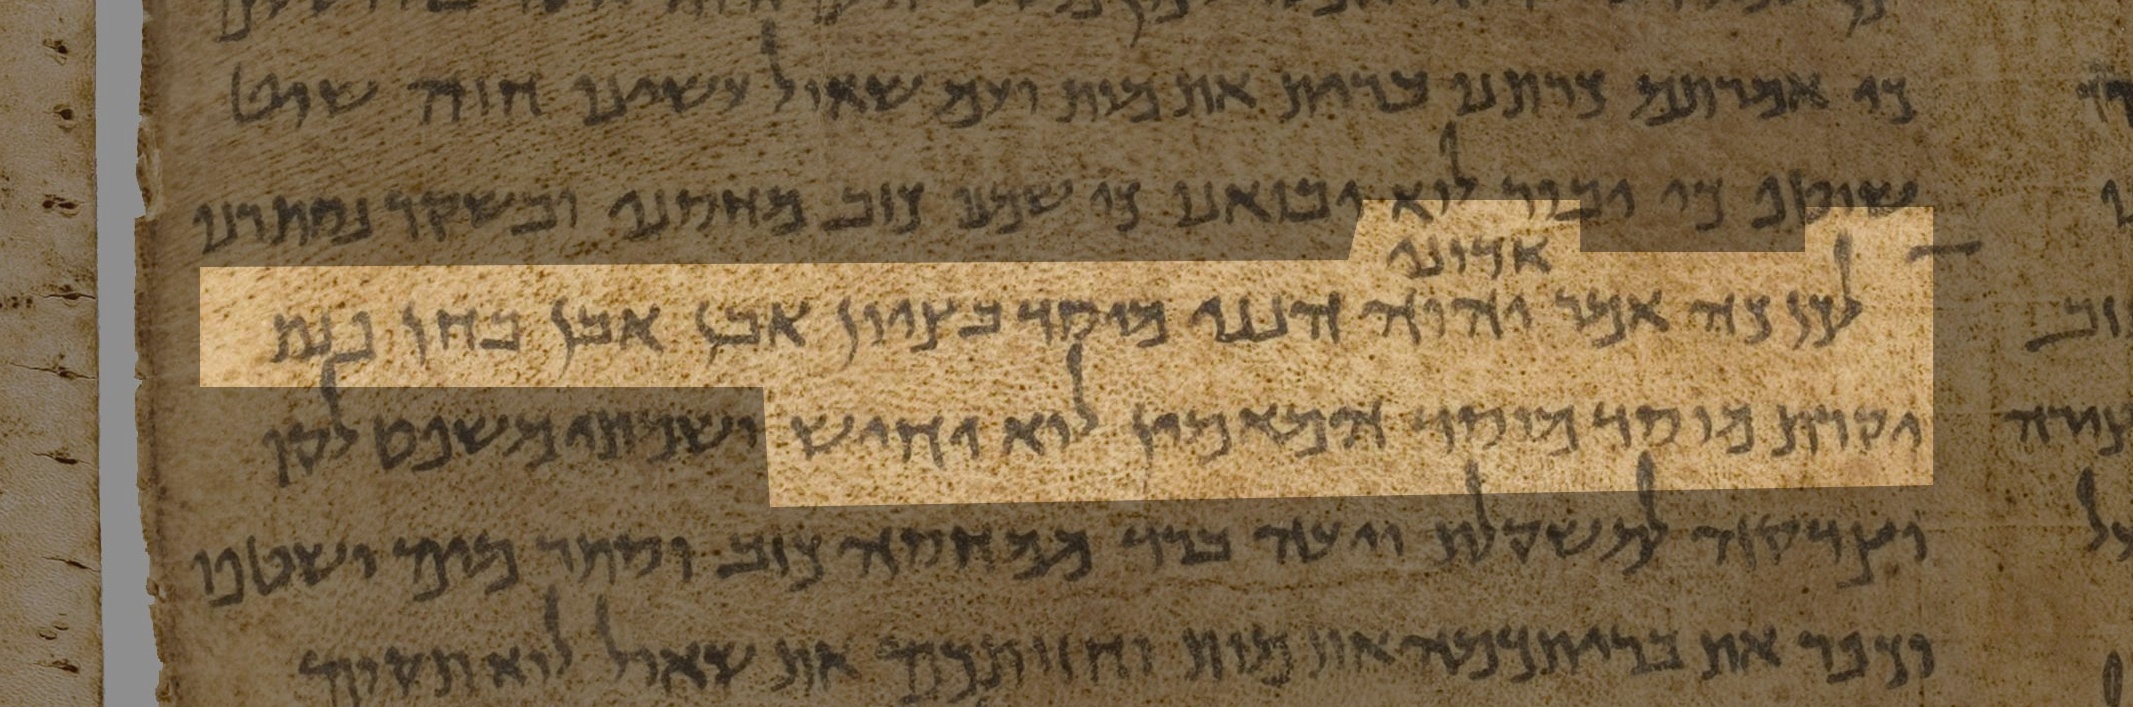 כי אמרתם כרתנו ברית את מות ועם שאול עשינו חוזה שוט
שוטפ כי יבור לוא יבואנו כי שמנו כזב מחסנו ובשקר נסתרנו
אדוני
לכן כה אמר יהוה הנני מיסד בציון אבן אבן בחן פנת
יקרת מוסד מוסד המאמין לוא יחיש ושמתי משפט לקו
וצדקה למשקלת ויעה ברד מחסה כזב וסתר מים ישטפו
וכפר את בריתכמה את מות וחזותכם את שאול לוא תקום